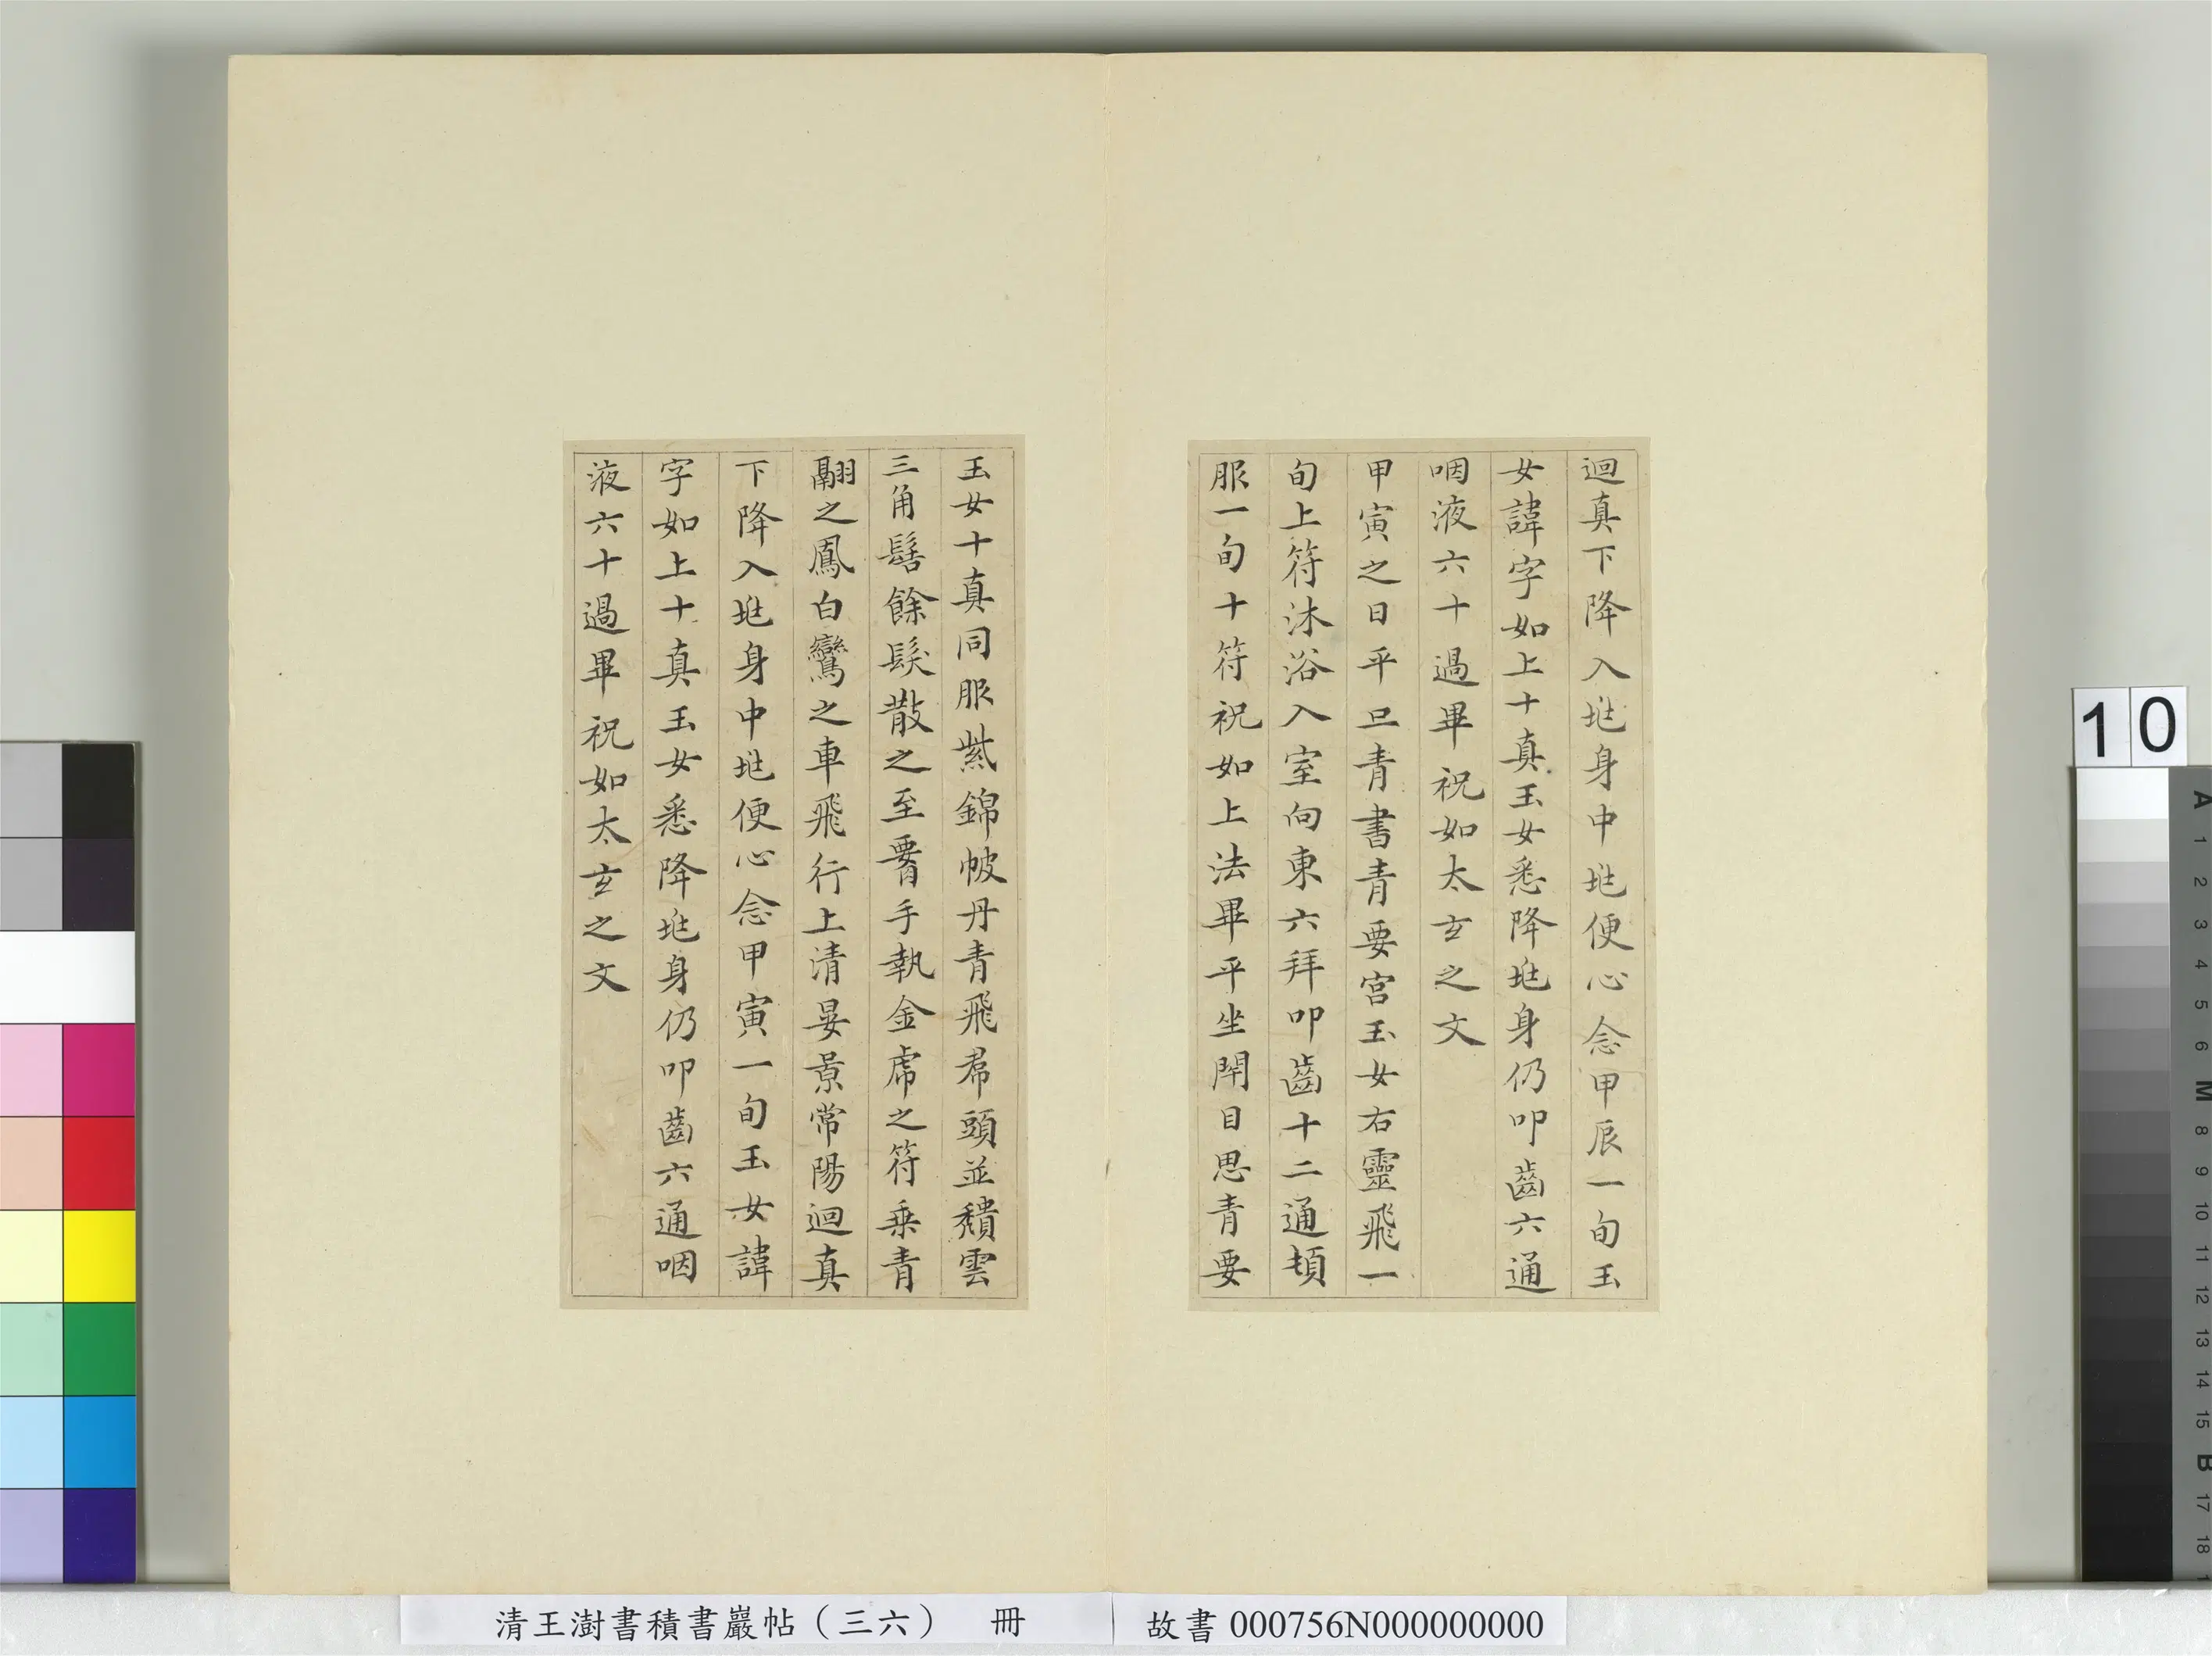 迴真下降入兆身中兆便心念甲辰一旬玉
女諱字如上十真玉女悉降兆身仍叩齒六通
咽液六十過畢祝如太玄之文
甲寅之日平旦青書青要宮玉女右靈飛一
旬上符沐浴入室向東六拜叩齒十二通頓
服一旬十符祝如上法畢平坐閉目思青要
玉女十真同服紫錦帔丹青飛帬頭並穨雲
三角髻餘髮散之至要手執金虎之符乘青
翮之鳳白鸞之車飛行上清晏景常陽迴真
下降入兆身中兆便心念甲寅一旬玉女諱
字如上十真玉女悉降兆身仍叩齒六通咽
液六十過畢祝如太玄之文
10
A
1
2
3
4
5
6
M
8
9
10
11
12
13
14
15
B
17
18
清王澍書積書巖帖（三六） 冊
故書 000756N000000000